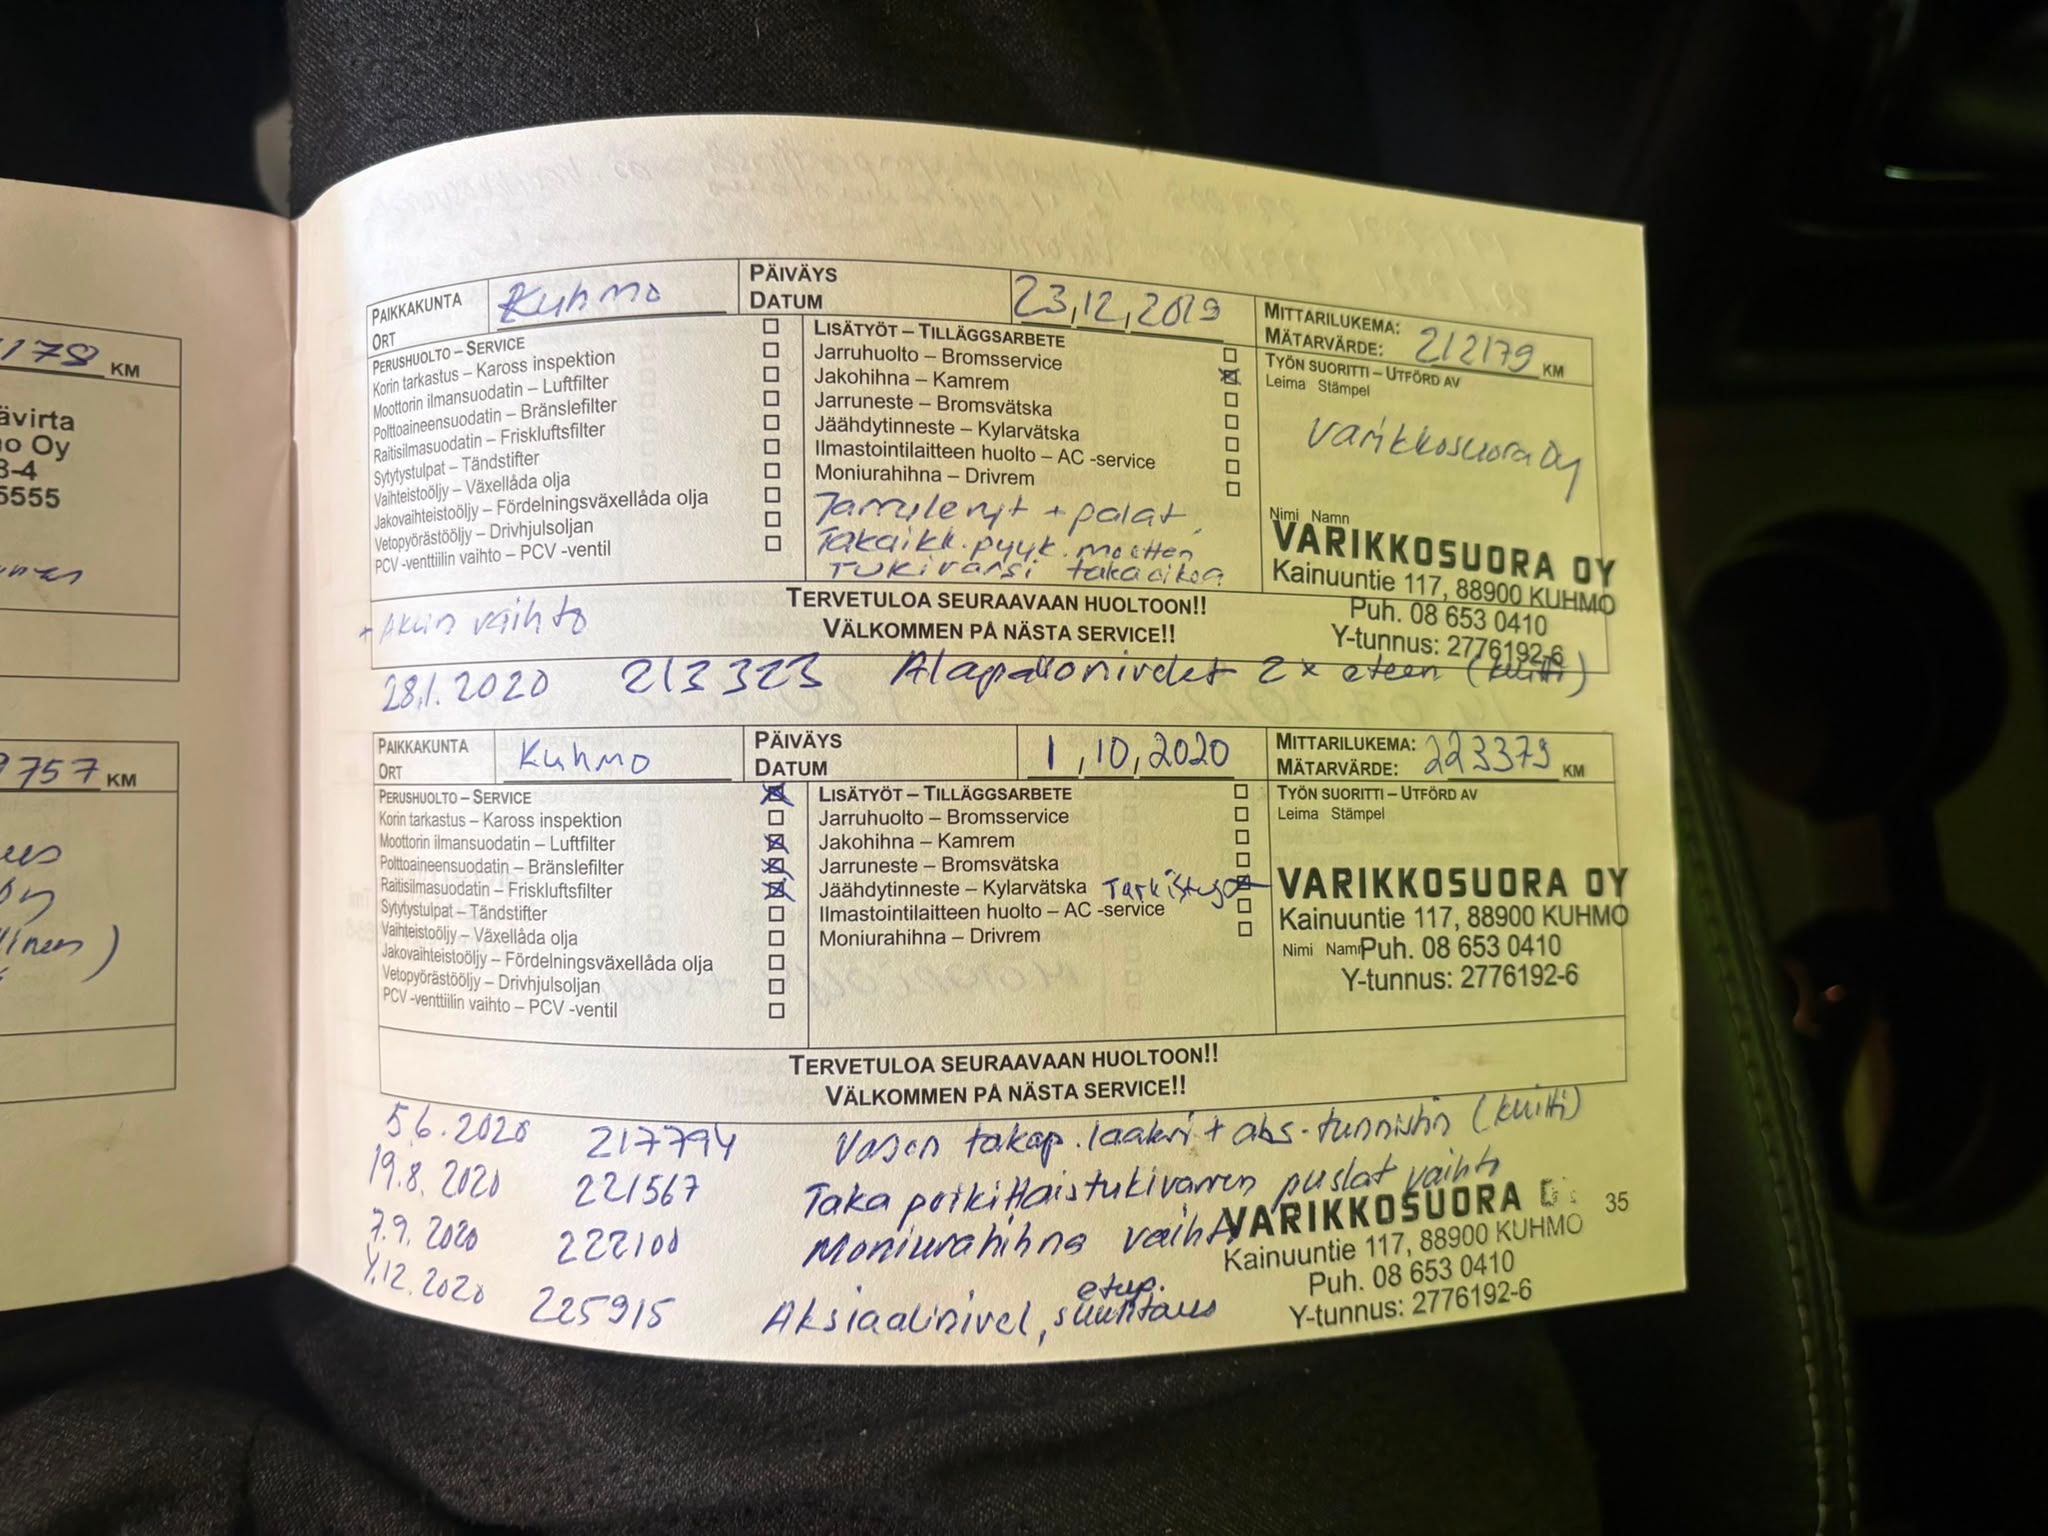 1178 KM
ävirta
o Oy
3-4
5555
9757 KM
PAIKKAKUNTA
ORT
Kuhmo
PÄIVÄYS
DATUM
23,12,2019
MITTARILUKEMA:
MÄTARVÄRDE: 212179 KM
PERUSHUOLTO – SERVICE
Korin tarkastus – Kaross inspektion
Moottorin ilmansuodatin – Luftfilter
Polttoaineensuodatin – Bränslefilter
Raitisilmasuodatin – Friskluftsfilter
Sytytystulpat – Tändstifter
Vaihteistoöljy – Växellåda olja
Jakovaihteistoöljy – Fördelningsväxellåda olja
Vetopyörästööljy – Drivhjulsoljan
PCV -venttiilin vaihto – PCV -ventil
LISÄTYÖT – TILLÄGGSARBETE
Jarruhuolto – Bromsservice
Jakohihna – Kamrem
Jarruneste – Bromsvätska
Jäähdytinneste – Kylarvätska
Ilmastointilaitteen huolto – AC -service
Moniurahihna – Drivrem
Jarrulevyt + palat,
Takaikk.pyyk. mootten
tukivarsi takaoikea
TYÖN SUORITTI – UTFÖRD AV
Leima Stämpel
Varikkosuora Oy
Nimi Namn
VARIKKOSUORA OY
Kainuuntie 117, 88900 KUHMO
Puh. 08 653 0410
Y-tunnus: 2776192-6
+ Akun vaihto
TERVETULOA SEURAAVAAN HUOLTOON!!
VÄLKOMMEN PÅ NÄSTA SERVICE!!
28.1.2020 213323 Alapallonivelet 2x eteen (kuitti)
PAIKKAKUNTA
ORT
Kuhmo
PÄIVÄYS
DATUM
1,10,2020
MITTARILUKEMA:
MÄTARVÄRDE: 223379 KM
PERUSHUOLTO – SERVICE
Korin tarkastus – Kaross inspektion
Moottorin ilmansuodatin – Luftfilter
Polttoaineensuodatin – Bränslefilter
Raitisilmasuodatin – Friskluftsfilter
Sytytystulpat – Tändstifter
Vaihteistoöljy – Växellåda olja
Jakovaihteistoöljy – Fördelningsväxellåda olja
Vetopyörästööljy – Drivhjulsoljan
PCV -venttiilin vaihto – PCV -ventil
LISÄTYÖT – TILLÄGGSARBETE
Jarruhuolto – Bromsservice
Jakohihna – Kamrem
Jarruneste – Bromsvätska
Jäähdytinneste – Kylarvätska Tarkistus
Ilmastointilaitteen huolto – AC -service
Moniurahihna – Drivrem
TYÖN SUORITTI – UTFÖRD AV
Leima Stämpel
VARIKKOSUORA OY
Kainuuntie 117, 88900 KUHMO
Nimi Namn Puh. 08 653 0410
Y-tunnus: 2776192-6
TERVETULOA SEURAAVAAN HUOLTOON!!
VÄLKOMMEN PÅ NÄSTA SERVICE!!
5.6.2020 217794 Vasen takap.laakri + abs-tunnistin (kuitti)
19.8.2020 221567 Taka poikittaistukivarren puslat vaihto
7.9.2020 222100 Moniurahihna vaihto
4.12.2020 225915 Aksiaalinivel, etup. suuntaus
VARIKKOSUORA
Kainuuntie 117, 88900 KUHMO
Puh. 08 653 0410
Y-tunnus: 2776192-6
35